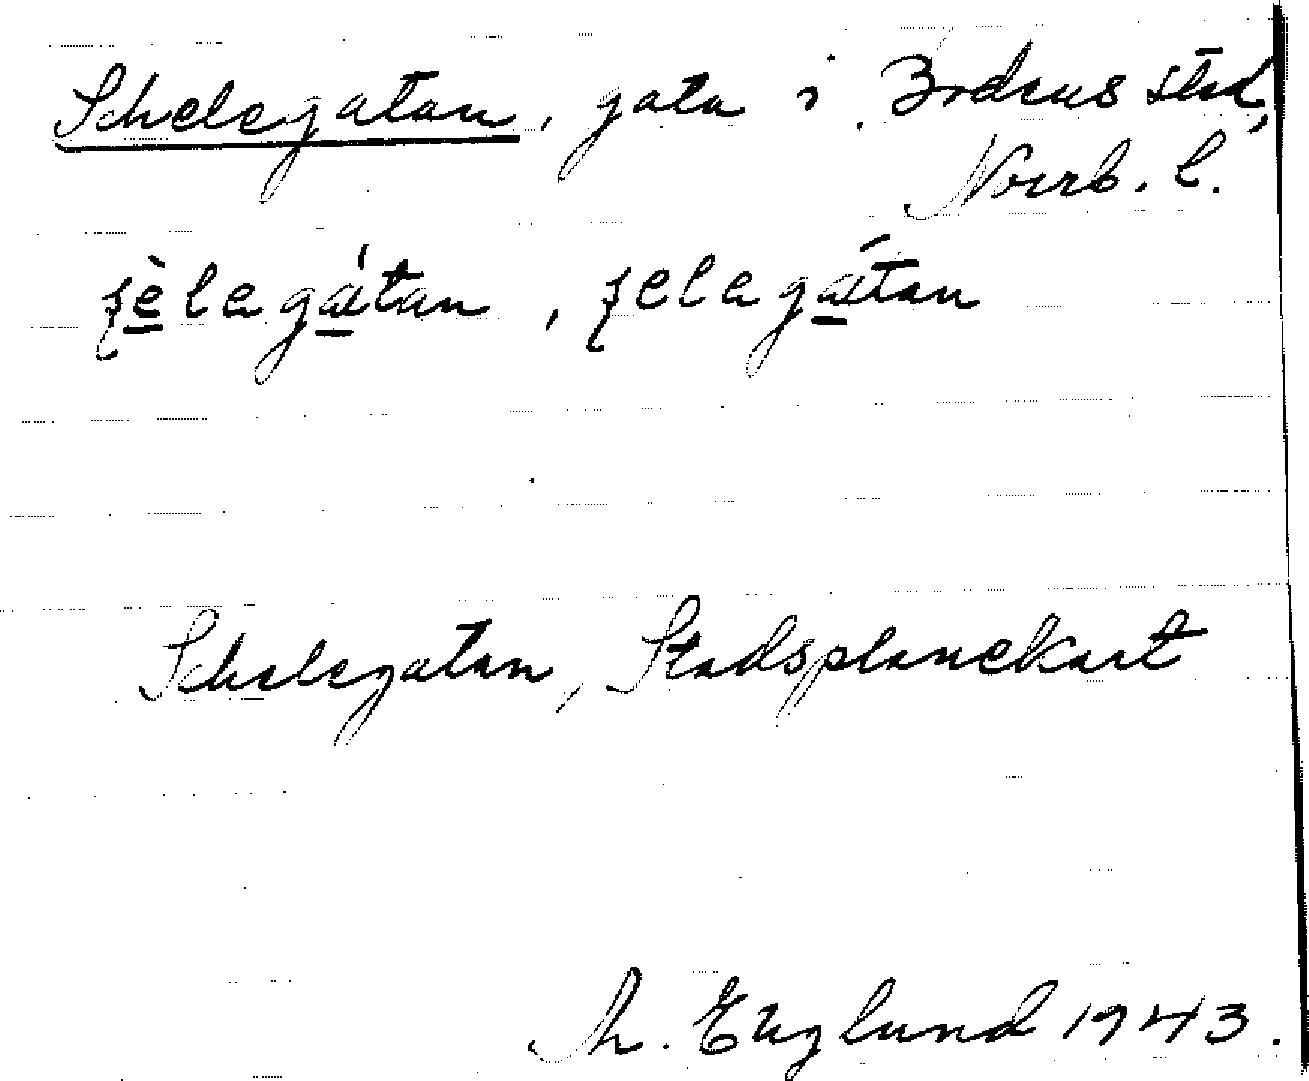 Schelegatan, gata i Bodens stad,
Norrb. l.
ʂèlegátan, ʂelegátan
Schelegatan, Stadsplanekart
M. Englund 1943.